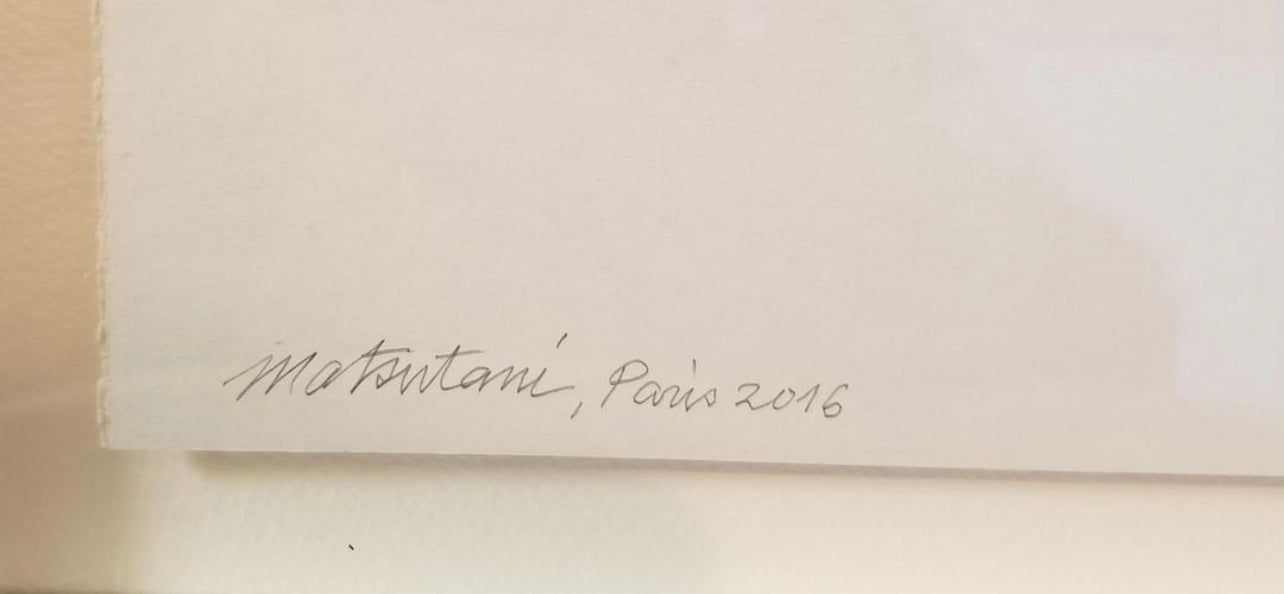 Matsutani, Paris 2016